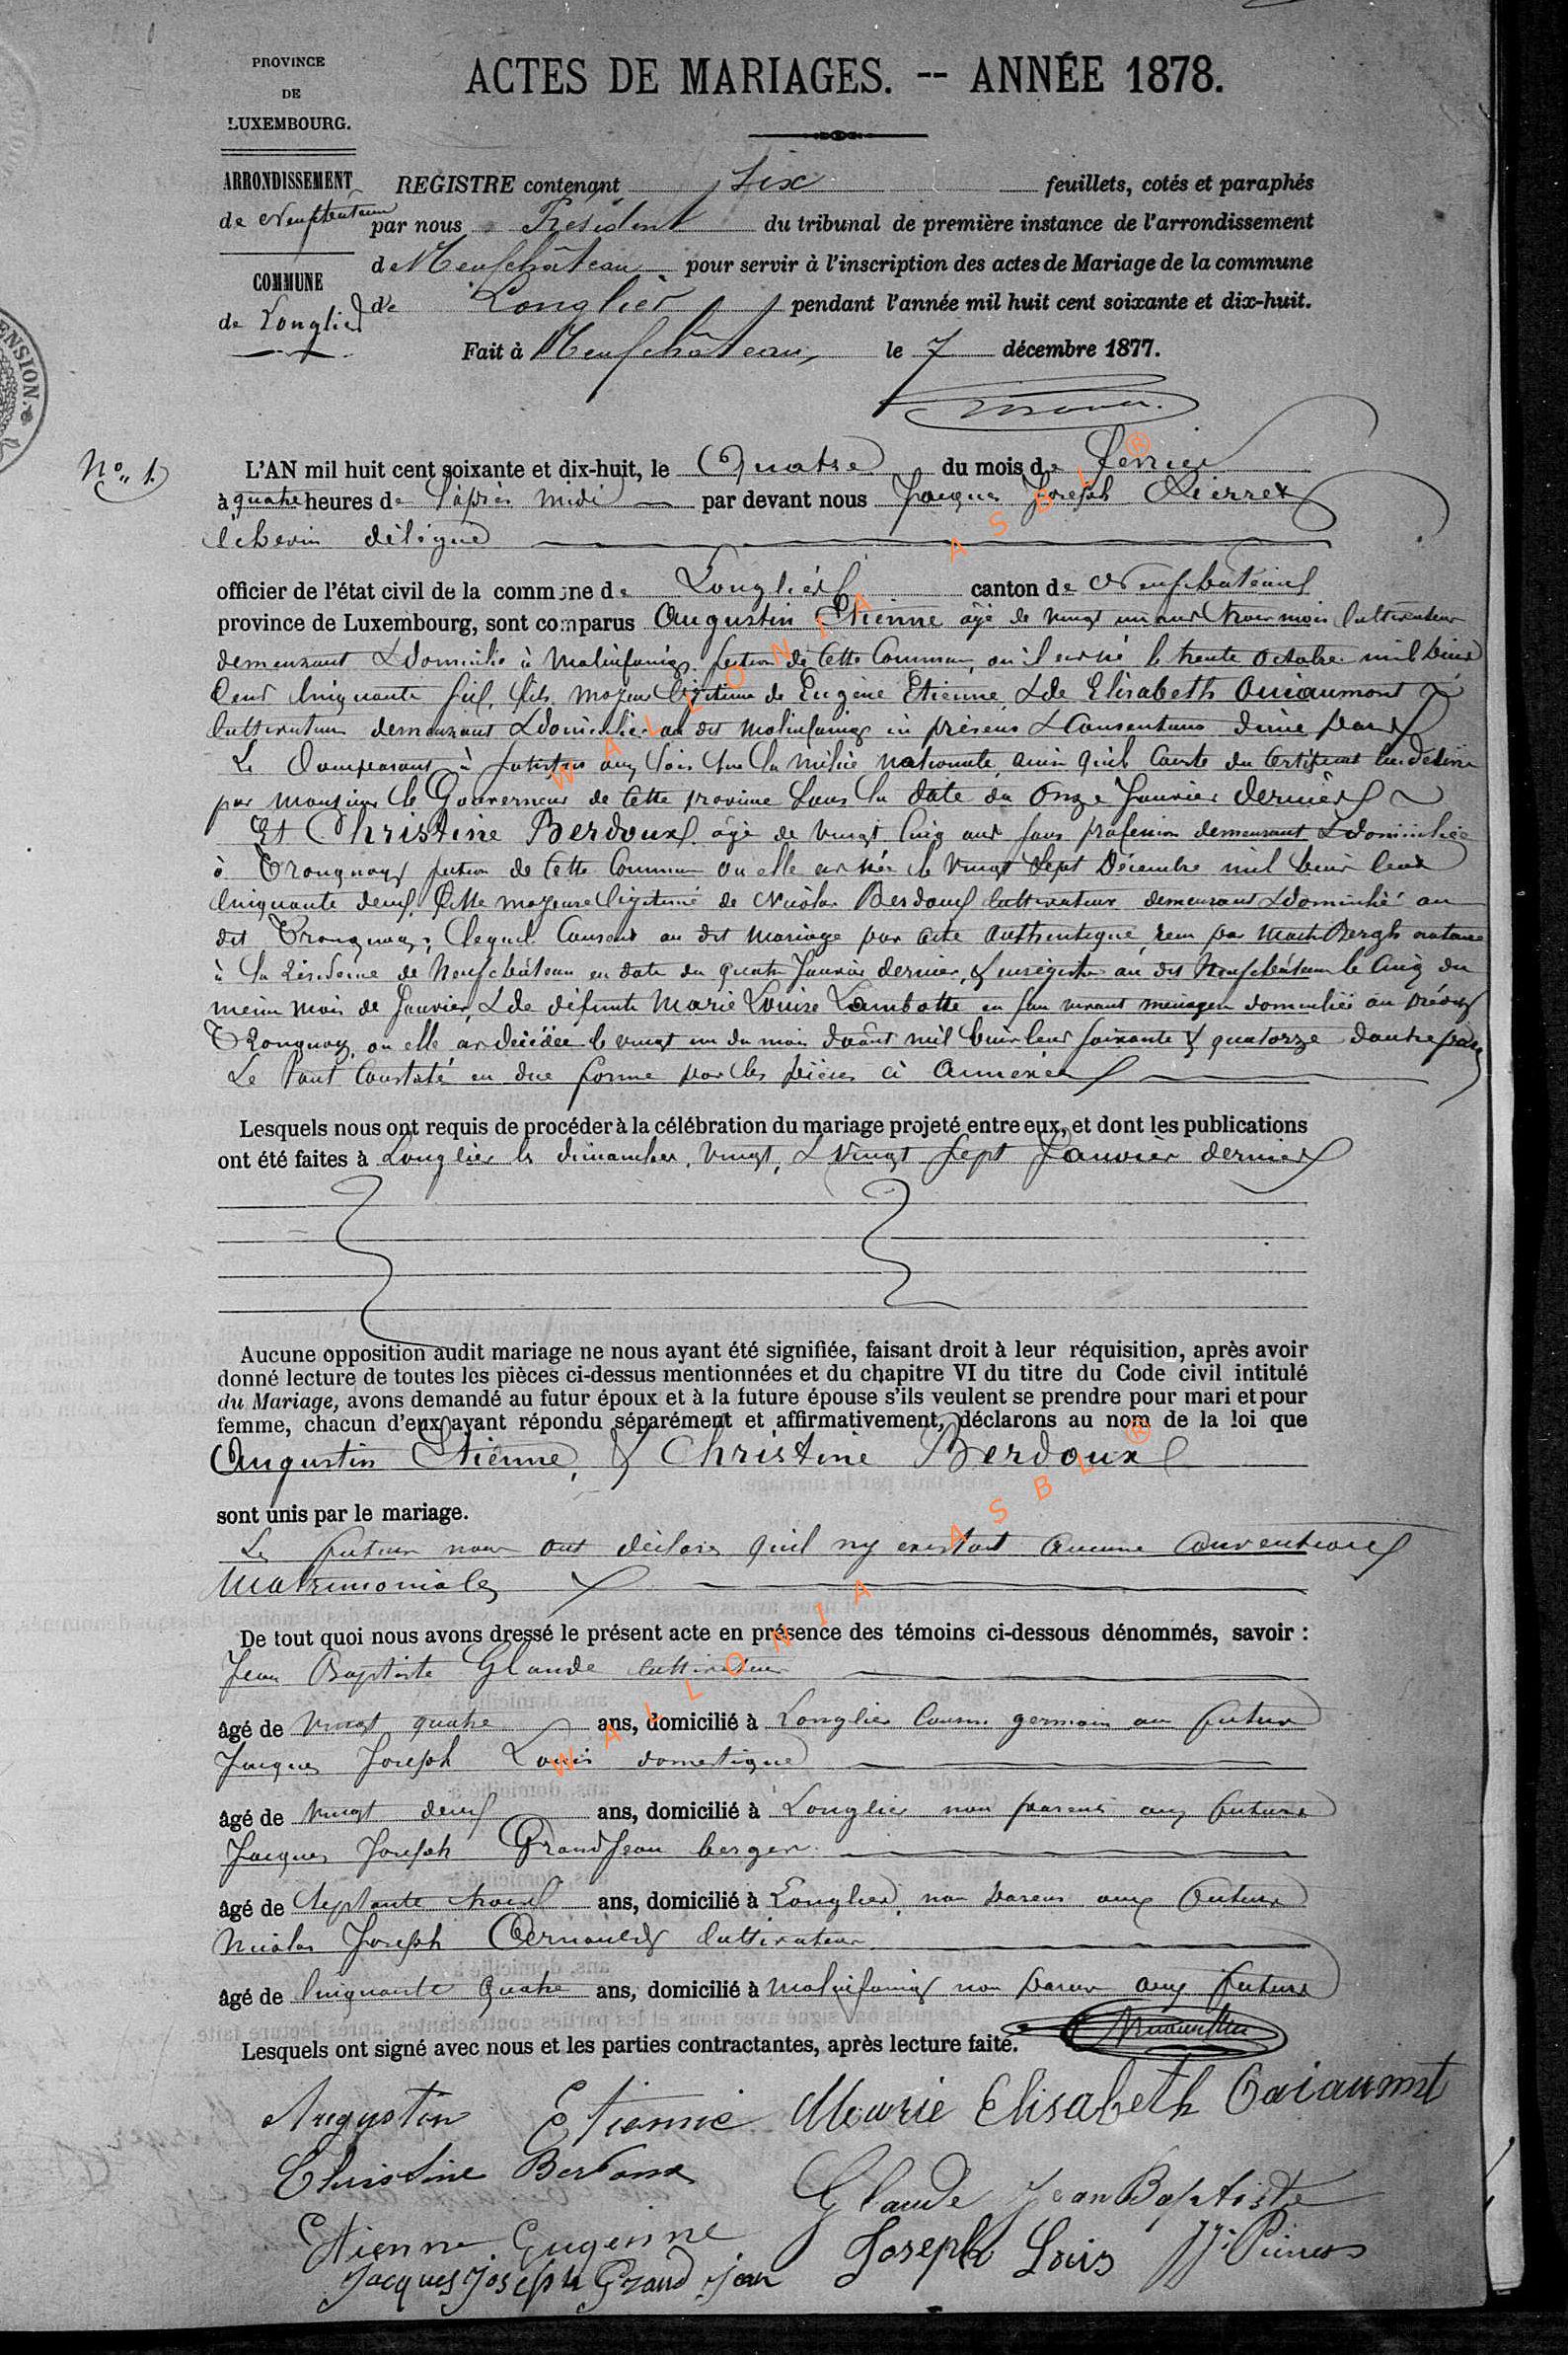 PROVINCE
DE
LUXEMBOURG.
ACTES DE MARIAGES. -- ANNÉE 1878.
ARRONDISSEMENT
de Neufchateau
COMMUNE
de Longlier
REGISTRE contenant six feuillets, cotés et paraphés
par nous Président du tribunal de première instance de l'arrondissement
de Neufchâteau pour servir à l'inscription des actes de Mariage de la commune
de Longlier pendant l'année mil huit cent soixante et dix-huit.
Fait à Neufchâteau, le 7 décembre 1877.
ENSION.
No. 1.
L'AN mil huit cent soixante et dix-huit, le Quatre du mois de fevrier
à quatre heures de l'après midi par devant nous Jacques Joseph Pierret
échevin délégué
officier de l'état civil de la commune de Longlier canton de Neufchateau
province de Luxembourg, sont comparus Augustin Etienne âgé de vingt un ans trois mois Cultivateur
demeurant & domicilié à Molinfaing section de cette Commune, où il est né le trente Octobre mil huit
Cent Cinquante six, fils majeur légitime de Eugène Etienne, & de Elisabeth Oriaumont
Cultivateurs demeurant & domiciliés au dit Molinfaing ici présens & Consentans d'une part
Le Comparant à satisfait aux lois sur la milice nationale, ainsi qu'il Conste du Certificat lui délivré
par Monsieur le Gouverneur de cette province sous la date du Onze Janvier dernier
Et Christine Berdoux âgé de vingt cinq ans sans profession demeurant & domiciliée
à Tronquoy section de cette Commune où elle est née le vingt sept Décembre mil huit cent
Cinquante deux, fille majeure légitime de Nicolas Berdoux Cultivateur demeurant & domicilié au
dit Tronquoy; lequel Consent au dit mariage par acte authentique, reçu par Maitre Bergh notaire
à la résidence de Neufchâteau en date du quatre Janvier dernier, & enrégistré au dit Neufchâteau le Cinq du
même mois de Janvier, & de défunte Marie Louise Lambotte en son vivant ménagère domiciliée au prédit
Tronquoy, où elle est décédée le vingt un du mois d'août mil huit cent soixante & quatorze d'autre part
Le tout Constaté en due forme par les pièces ci Annexées
Lesquels nous ont requis de procéder à la célébration du mariage projeté entre eux, et dont les publications
ont été faites à Longlier les dimanches, vingt, & vingt sept Janvier dernier
Aucune opposition audit mariage ne nous ayant été signifiée, faisant droit à leur réquisition, après avoir
donné lecture de toutes les pièces ci-dessus mentionnées et du chapitre VI du titre du Code civil intitulé
du Mariage, avons demandé au futur époux et à la future épouse s'ils veulent se prendre pour mari et pour
femme, chacun d'eux ayant répondu séparément et affirmativement, déclarons au nom de la loi que
Augustin Etienne, & Christine Berdoux
sont unis par le mariage.
Les futurs nous ont déclaré qu'il n'y existait Aucune Conventions
Matrimoniales
De tout quoi nous avons dressé le présent acte en présence des témoins ci-dessous dénommés, savoir :
Jean Baptiste Glaude Cultivateur
âgé de vingt quatre ans, domicilié à Longlier Cousin germain au futur
Jacques Joseph Louis domestique
âgé de vingt deux ans, domicilié à Longlier non parent aux futurs
Jacques Joseph Grandjean berger
âgé de septante trois ans, domicilié à Longlier, non parent aux futurs
Nicolas Joseph Cultivateur
âgé de Cinquante quatre ans, domicilié à Molinfaing non parent aux futurs
Lesquels ont signé avec nous et les parties contractantes, après lecture faite.
Augustin Etienne Marie Elisabeth Oriaumont
Christine Berdoux Glaude Jean Baptiste
Etienne Eugenne Joseph Louis JJ. Pierret
Jacques Joseph Grand Jean
WALLONIA ASBL ®
WALLONIA ASBL ®